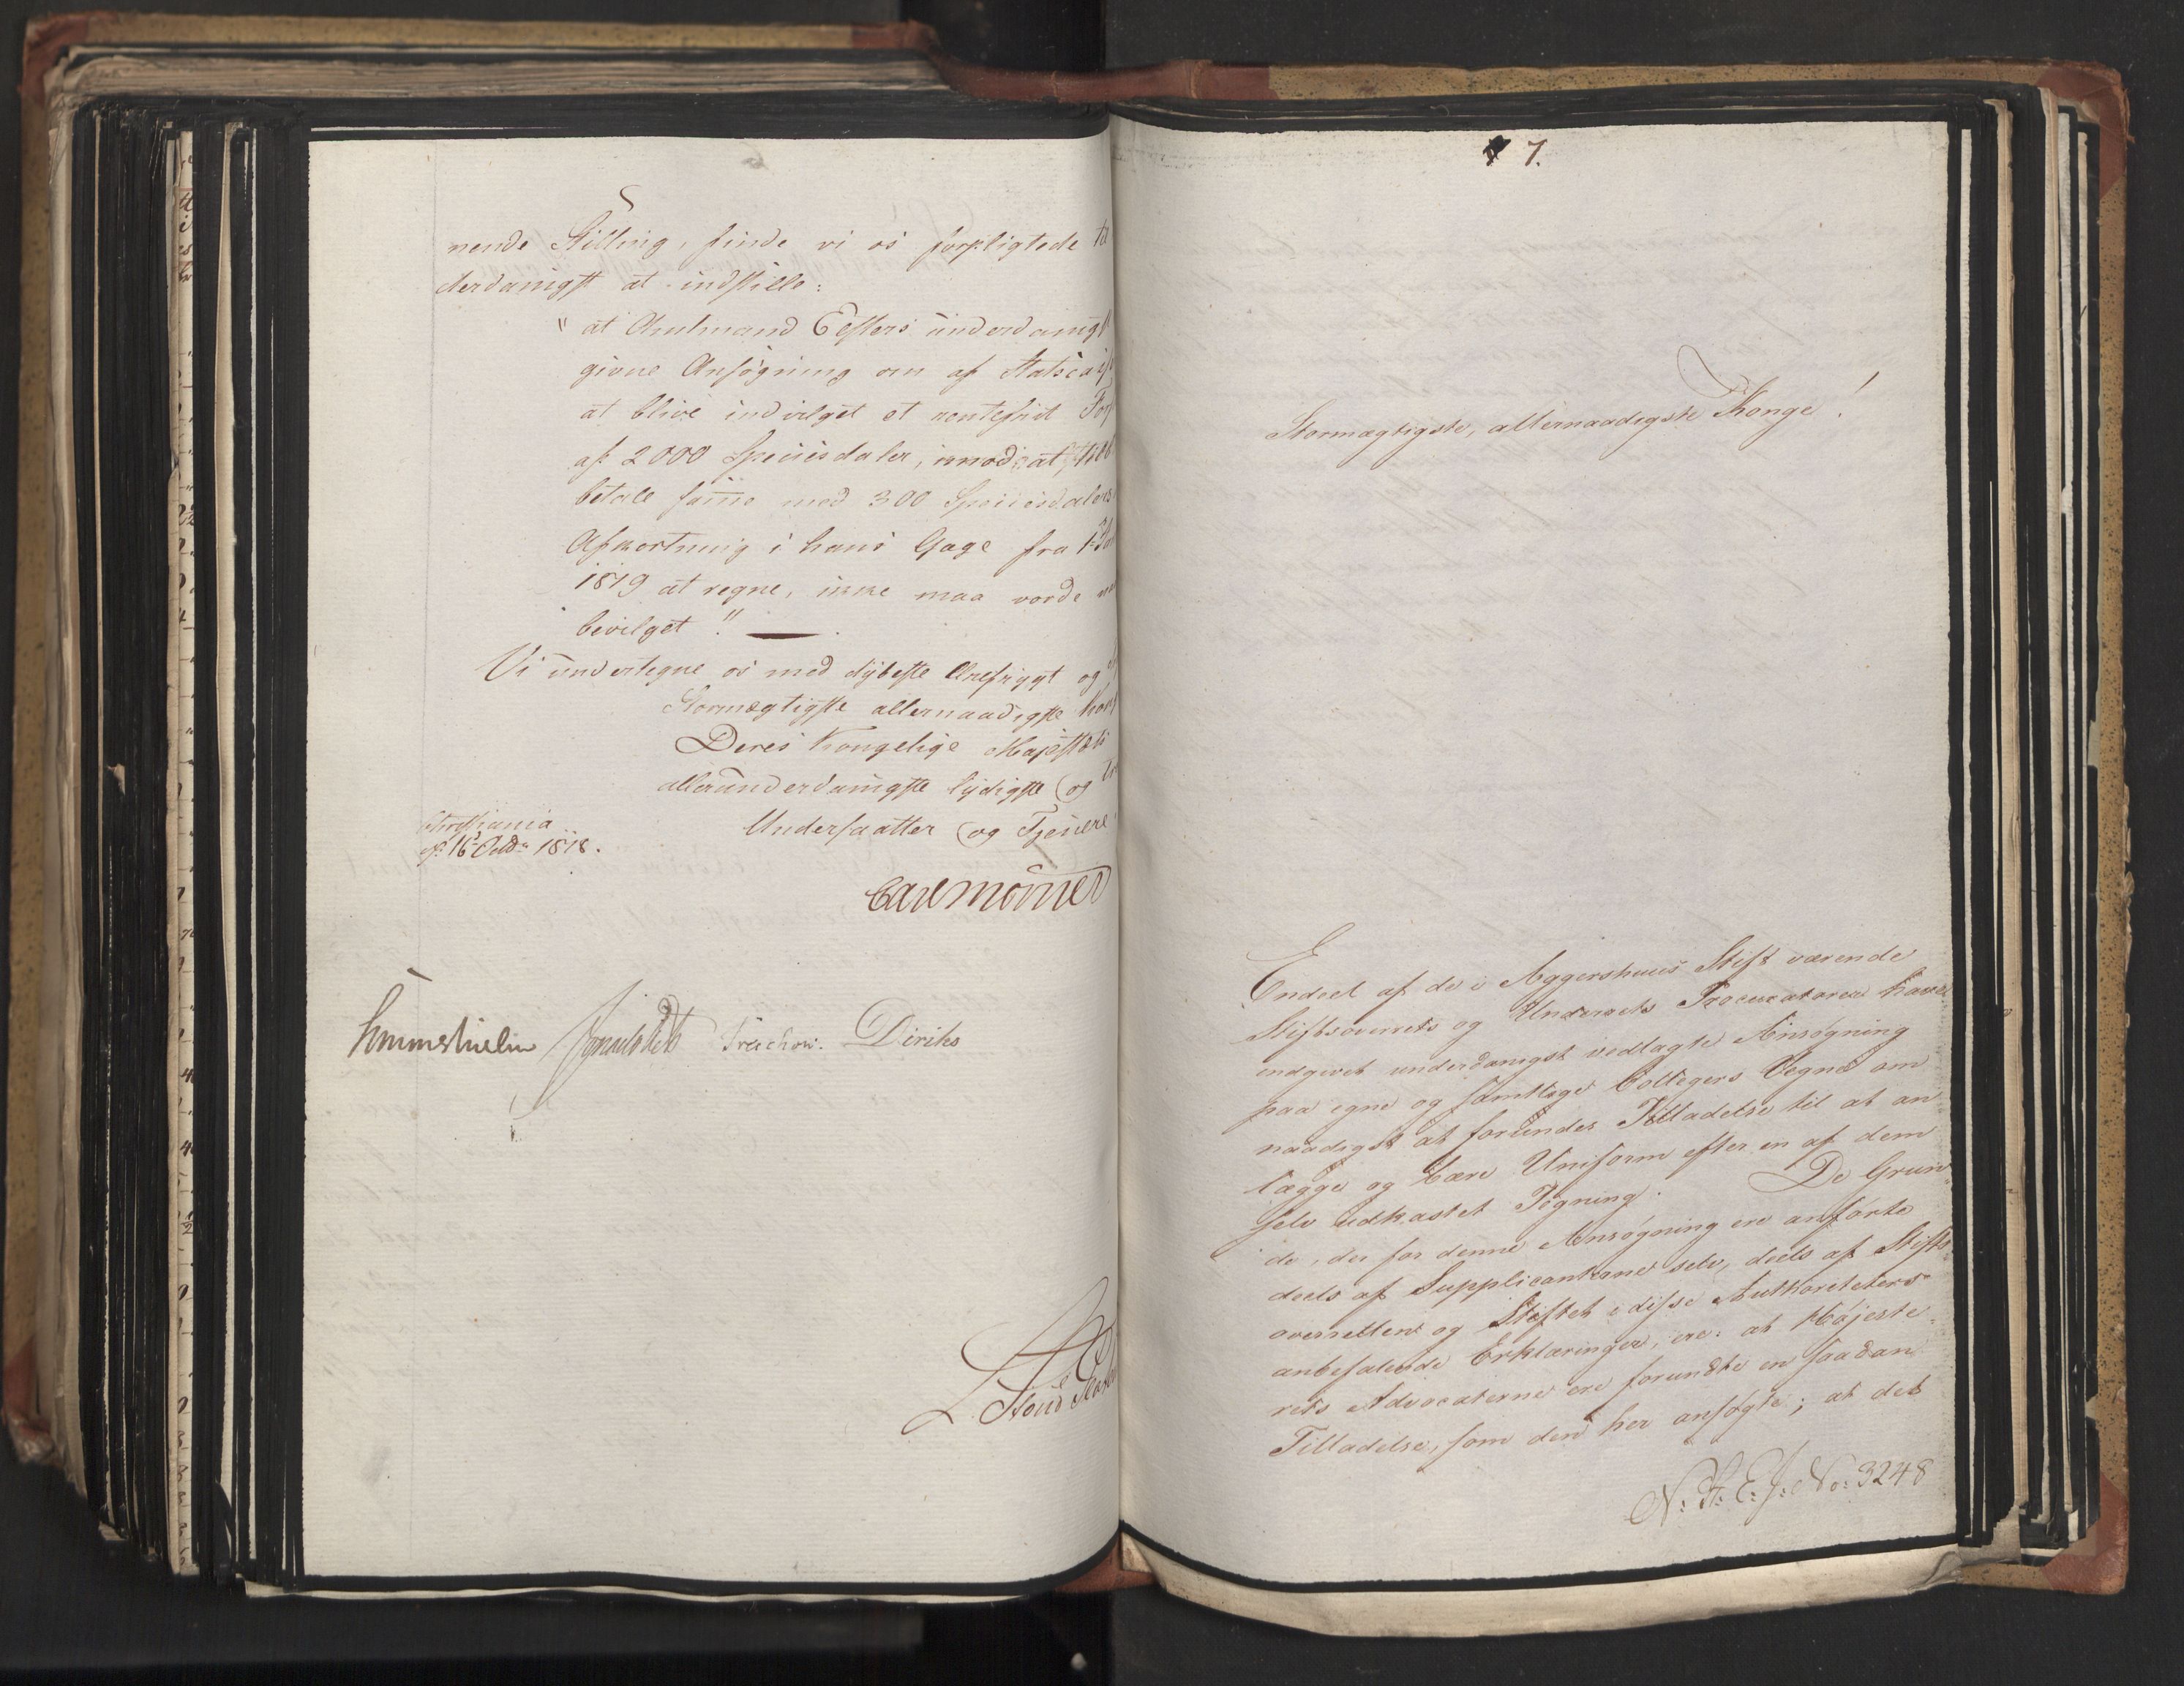 nende Stilling, finde vi os forpligtede
derdanigst at indstille:
"at Amtmand Eeflers underdanigst
givne Ansøgning om af Statsca
at blive indvilget et rentefrit For
af 2000 Speciesdaler, imod at
betale samme med 300 Speciesdalers
Afkortning i hans Gage fra 1
1819 at regne, ikke maa vorde
bevilget."
Vi undertegne os med dybeste Ærefrygt og
Stormægtigste allernaadigste Kon
Deres Kongelige Majestæts
allerunderdanigste lydigste og
Undersaatter og Tjenere
Christiania
16 Octbr 1818.
Carl Mörner
Hmmshielm Treschow. Diriks
7.
Stormægtigste, allernaadigste Konge!
Endeel af de i Aggershuus Stift værende
Stiftsoverrets og Underrets Procuratorer have
indgivet underdanigst vedlagte Ansøgning
paa egne og samtlige Collegers Vegne om
naadigst at forundes Tilladelse til at an
lægge og bære Uniform efter en af dem
selv udkastet Tegning. De Grun
de, der for denne Ansøgning ere anførte
deels af Supplicanterne selv, deels af Stifts
overretten og Stiftet i disse Authoriteters
anbefalende Erklæringer, ere: at Højeste
rets Advocaterne ere forundte en saadan
Tilladelse, som den her ansøgte; at det
N: St: E: J: No: 3248